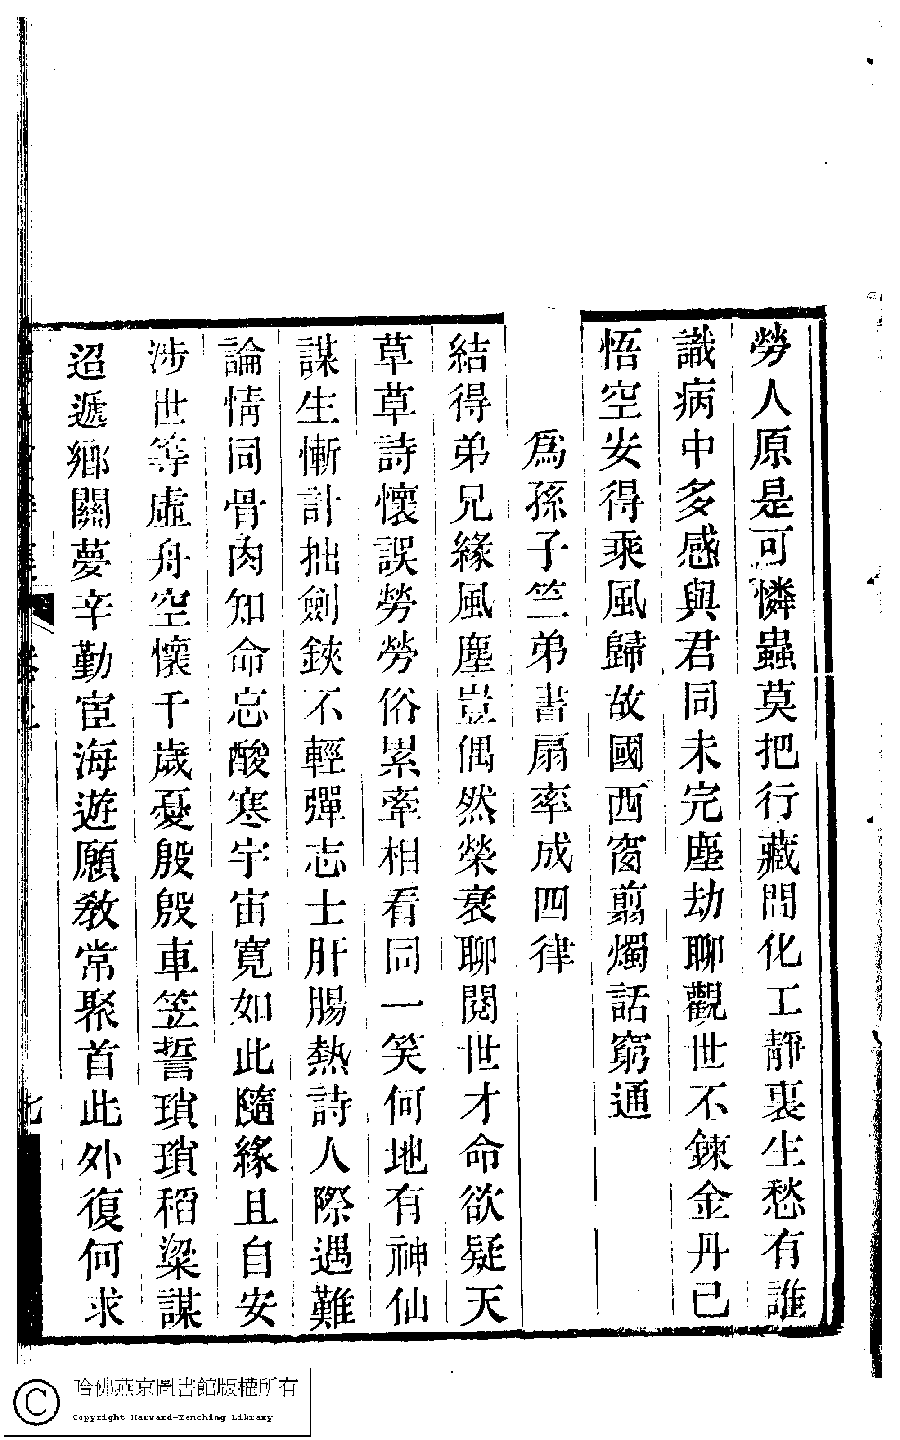 勞人原是可憐蟲莫把行藏問化工靜裏生愁有誰
識病中多感與君同未完塵劫聊觀世不鍊金丹已
悟空安得乘風歸故國西窗剪燭話窮通
爲孫子竺弟書扇率成四律
結得弟兄緣風塵豈偶然榮衰聊閱世才命欲疑天
草草詩懷誤勞勞俗累牽相看同一笑何地有神仙
謀生慚計拙劍鋏不輕彈志士肝腸熱詩人際遇難
論情同骨肉知命忘酸寒宇宙寬如此隨緣且自安
涉世等虛舟空懷千歲憂殷殷車笠誓瑣瑣稻粱謀
迢遞鄉關夢辛勤宦海遊願敎常聚首此外復何求
哈佛燕京圖書館版權所有
Copyright Harvard-Yenching Library